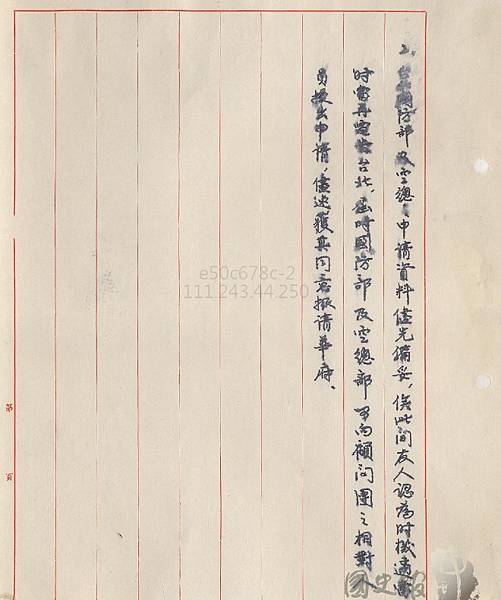 2、台北國防部及空總、申請資料儘先備妥，俟此間友人認為時機適當
時當再電台北，屆時國防部及空總部可向顧問團之相對人
員提出申請，儘速獲其同意報請華府、
第 頁
e50c678c-2
111.243.44.250
國史館